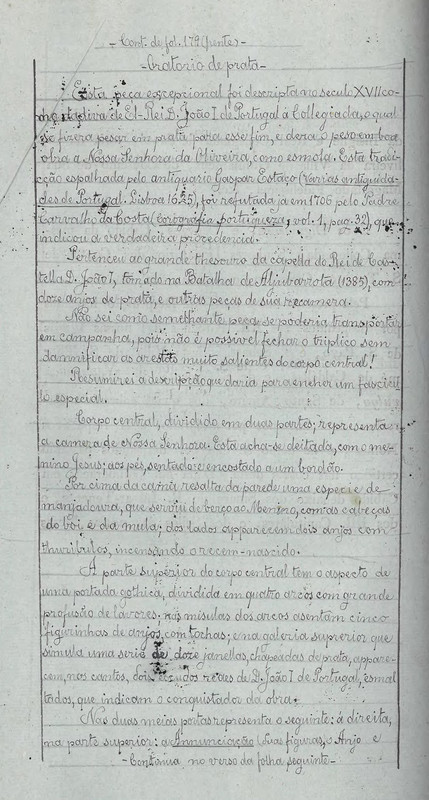 - Cont. de fol. 179 (frente) -
- Oratorio de prata -
Esta peça excepcional foi descripta no seculo XVII co-
mo dadiva de El-Rei D. João I de Portugal á Collegiada, o qual
se fizera pesar em prata para esse fim, e dera o peso em boa
obra a Nossa Senhora da Oliveira, como esmola. Esta tradi-
cção espalhada pelo antiquario Gaspar Estaço (Varias antiguida-
des de Portugal. Lisboa 1625), foi refutada já em 1706 pelo Padre
Carvalho da Costa (Corografia portugueza, vol. 1, pag. 32), que
indicou a verdadeira procedencia.
Pertenceu ao grande thesouro da capella do Rei de Cas-
tella D. João I, tomado na Batalha de Aljubarrota (1385), com
doze anjos de prata, e outras peças de sua recamera.
Não sei como semelhante peça se poderia transportar
em campanha, pois não é possivel fechar o triplico sem
damnificar as arestas muito salientes do corpo central!
Resumirei a descripção que daria para encher um fascicu-
lo especial.
Corpo central, dividido em duas partes; representa
a camera de Nossa Senhora. Esta acha-se deitada, com o me-
nino Jesus; aos pés, sentado e encostado a um bordão.
Por cima da cama resalta da parede uma especie de
manjadoura, que serviu de berço ao Menino, com as cabeças
do boi e da mula; dos lados apparecem dois anjos com
thuribulos, incensando o recem-nascido.
A parte superior do corpo central tem o aspecto de
uma portada gothica, dividida em quatro arcos com grande
profusão de lavores; nas misulas dos arcos asentam cinco
figurinhas de anjos, com tochas; e na galeria superior que
simula uma serie de doze janellas, chapeadas de prata, appare-
cem, nos cantos, dois escudos reaes de D. João I de Portugal, esmal-
tados, que indicam o conquistador da obra.
Nas duas meias portas representa o seguinte: á direita,
na parte superior: a Annunciação (duas figuras, o Anjo e
- Continua no verso da folha seguinte -